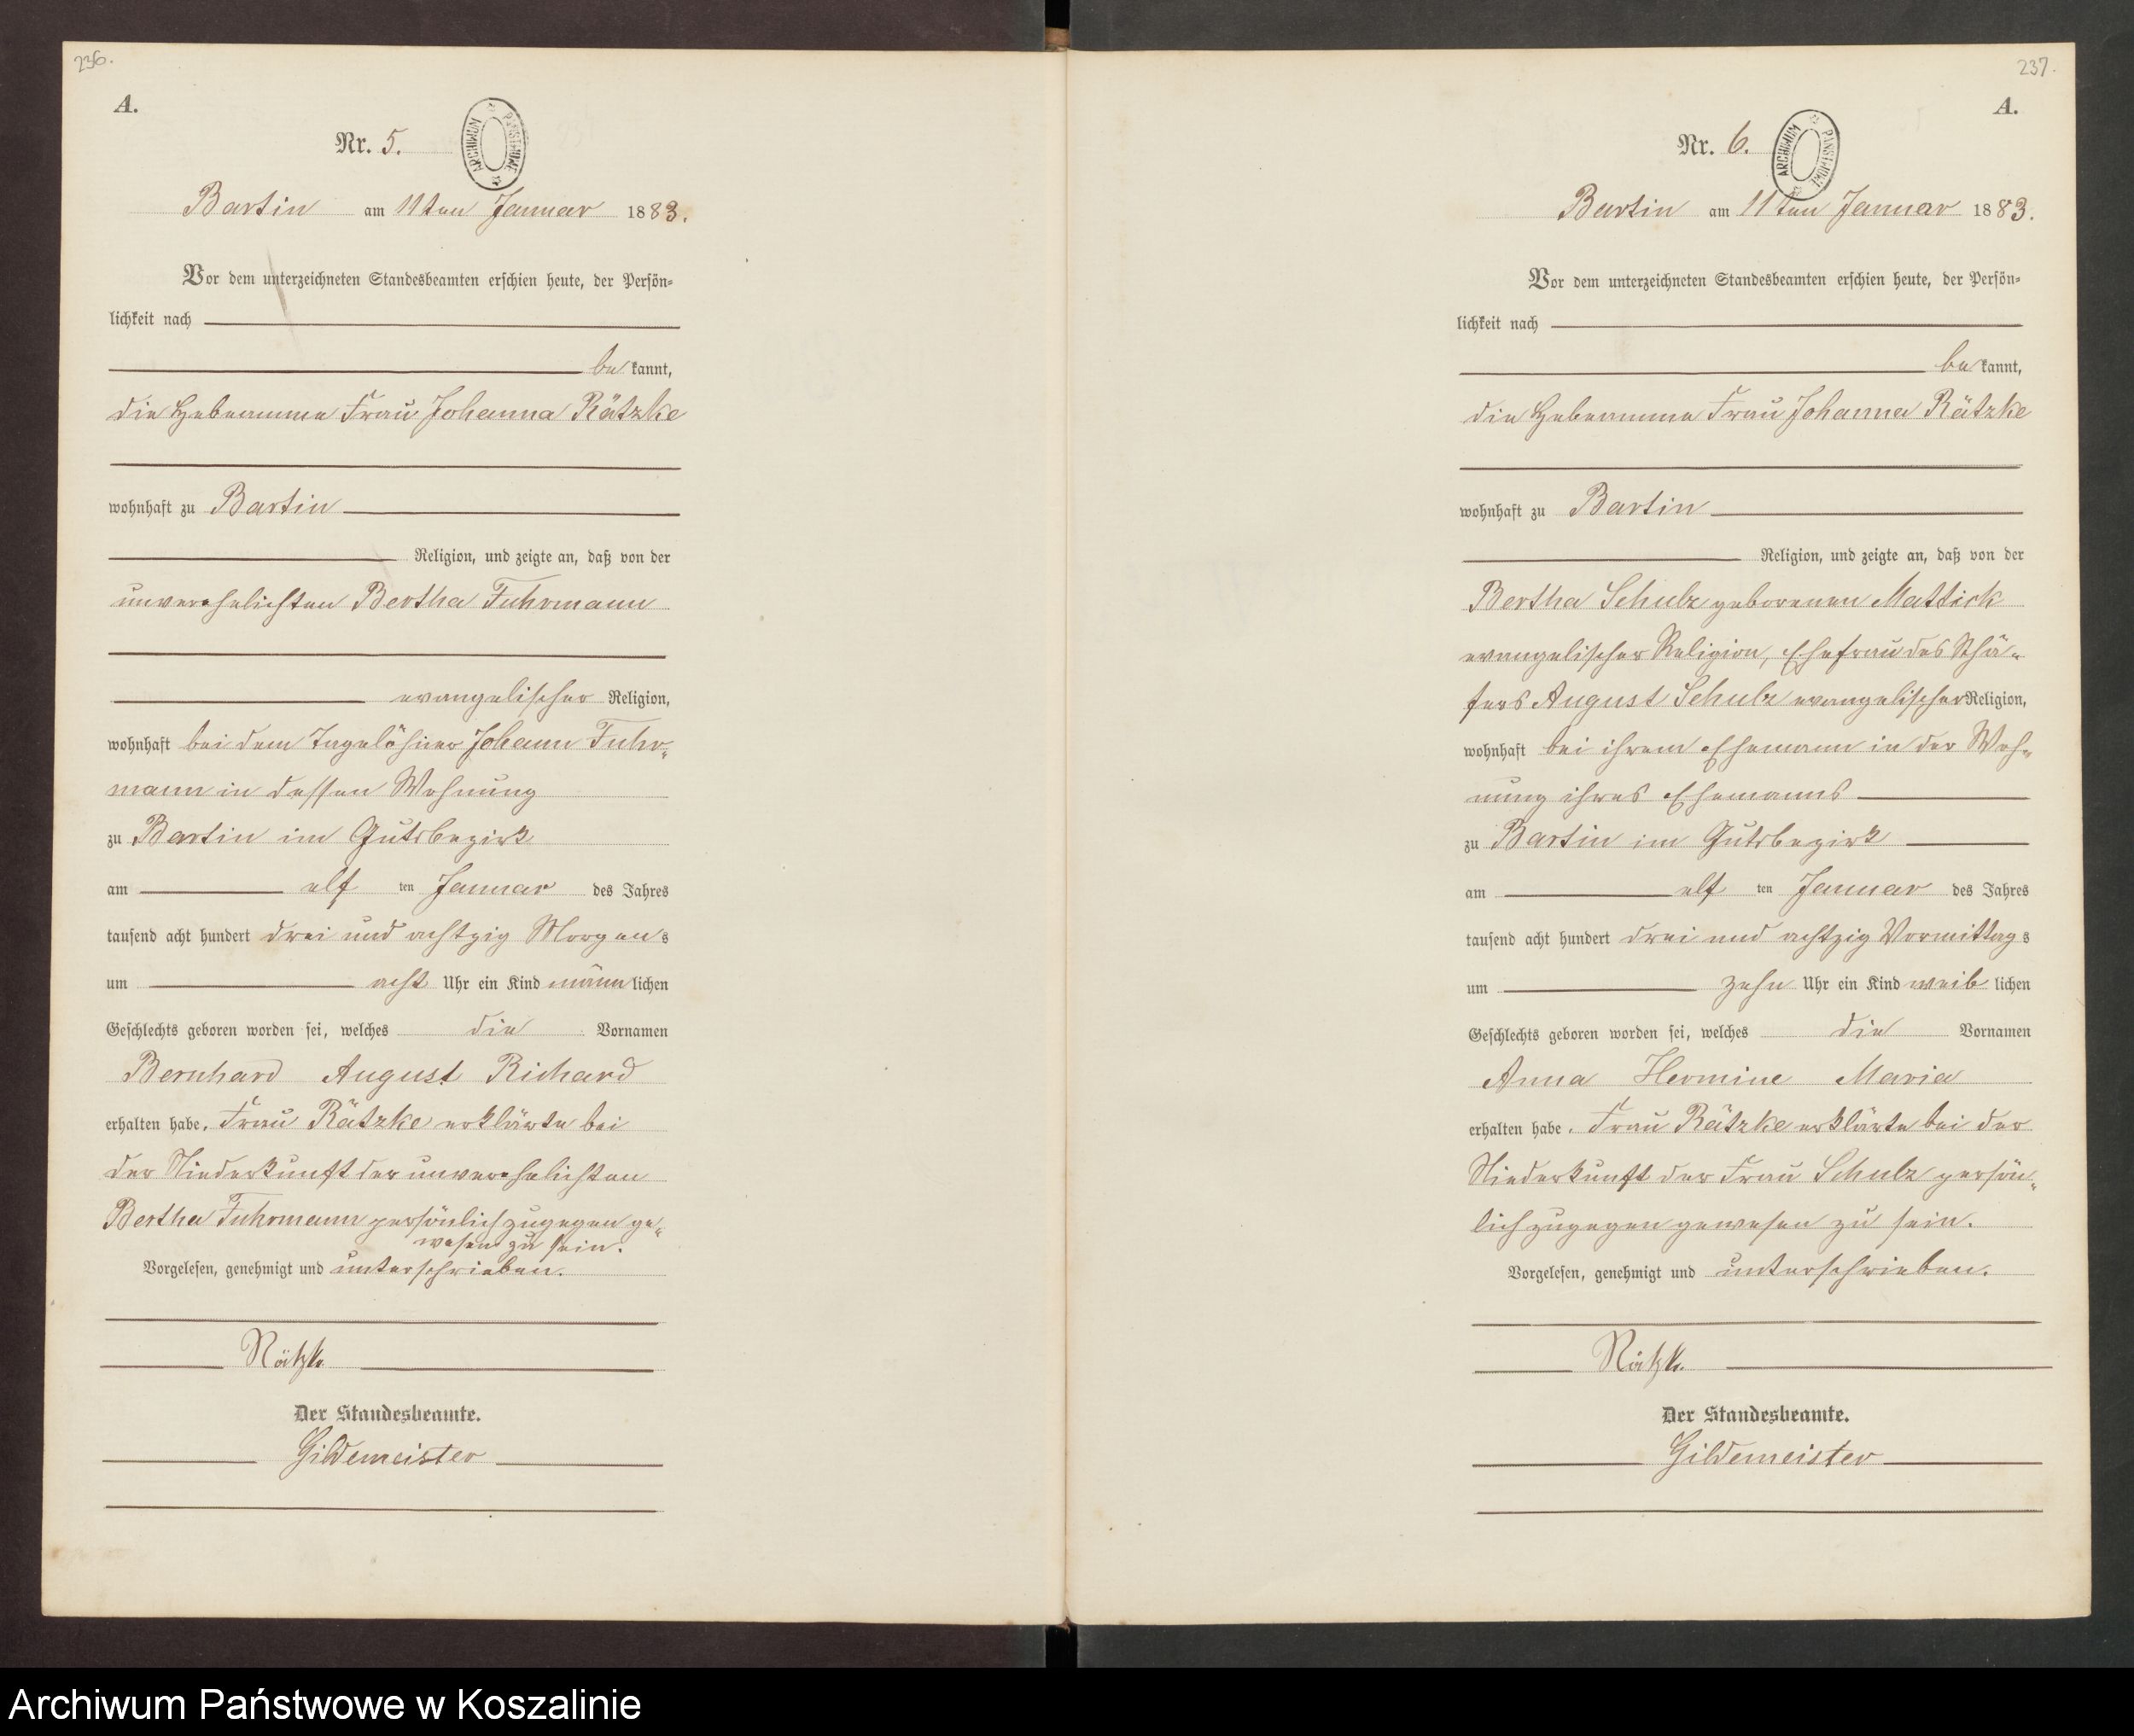 236.
A.
Nr. 5.
ARCHIWUM PAŃSTWOWE
Bartin am 11ten Januar 1883.
Vor dem unterzeichneten Standesbeamten erschien heute, der Persön-
lichkeit nach
be kannt,
die Hebeamme Frau Johanna Rätzke
wohnhaft zu Bartin
Religion, und zeigte an, daß von der
unverehelichten Bertha Fuhrmann
evangelischer Religion,
wohnhaft bei dem Tagelöhner Johann Fuhr-
mann in dessen Wohnung
zu Bartin im Gutsbezirk
am elf ten Januar des Jahres
tausend acht hundert drei und achtzig Morgens
um acht Uhr ein Kind männ lichen
Geschlechts geboren worden sei, welches die Vornamen
Bernhard August Richard
erhalten habe. Frau Rätzke erklärte bei
der Niederkunft der unverehelichten
Bertha Fuhrmann persönlich zugegen ge-
wesen zu sein.
Vorgelesen, genehmigt und unterschrieben.
Rätzke
Der Standesbeamte.
Gildemeister
237.
A.
Nr. 6.
ARCHIWUM PAŃSTWOWE
Bartin am 11ten Januar 1883.
Vor dem unterzeichneten Standesbeamten erschien heute, der Persön-
lichkeit nach
be kannt,
die Hebeamme Frau Johanna Rätzke
wohnhaft zu Bartin
Religion, und zeigte an, daß von der
Bertha Schulz geborenen Mattick
evangelischer Religion, Ehefrau des Schä-
fers August Schulz evangelischer Religion,
wohnhaft bei ihrem Ehemann in der Woh-
nung ihres Ehemanns
zu Bartin im Gutsbezirk
am elf ten Januar des Jahres
tausend acht hundert drei und achtzig Vormittags
um zehn Uhr ein Kind weib lichen
Geschlechts geboren worden sei, welches die Vornamen
Anna Hermine Maria
erhalten habe. Frau Rätzke erklärte bei der
Niederkunft der Frau Schulz persön-
lich zugegen gewesen zu sein.
Vorgelesen, genehmigt und unterschrieben.
Rätzke
Der Standesbeamte.
Gildemeister
Archiwum Państwowe w Koszalinie